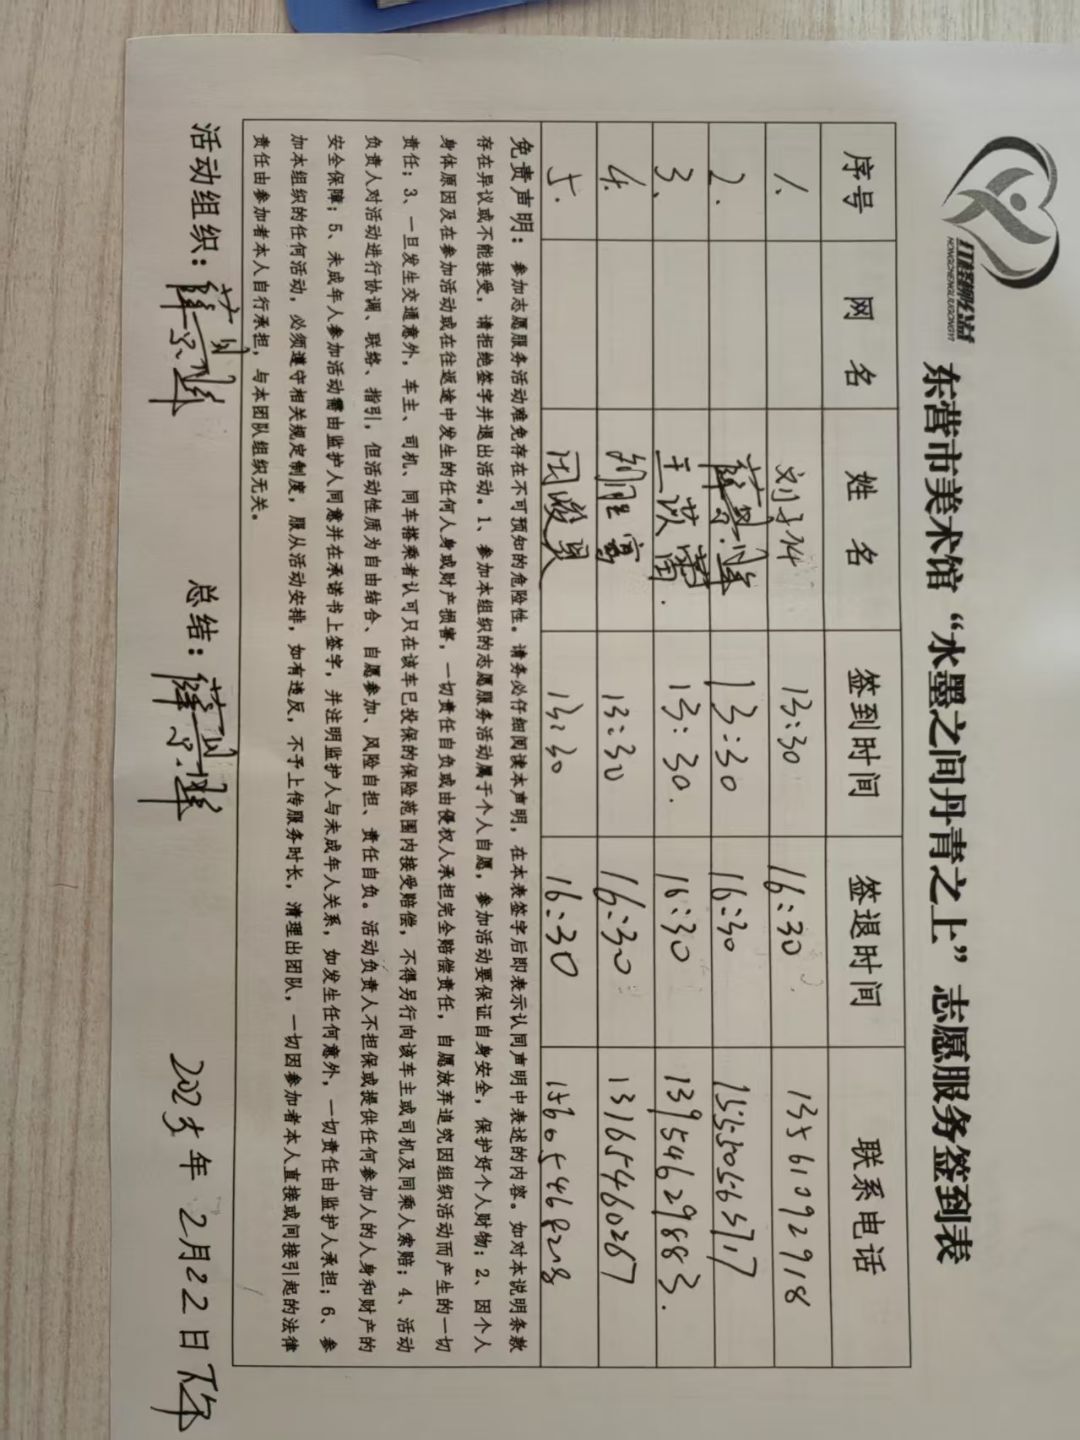 HONGCHENGLIUGONGYI
东营市美术馆“水墨之间丹青之上”志愿服务签到表
序号 网 名 姓 名 签到时间 签退时间 联系电话
1. 13:30 16:30 13561092918
2. 13:30 16:30
3. 13:30. 16:30 13954629883.
4. 13:30 16:30 131654460267
5. 13:30 16:30
免责声明：参加志愿服务活动难免存在不可预知的危险性。请务必仔细阅读本声明，在本表签字后即表示认同声明中表述的内容。如对本说明条款
存在异议或不能接受，请拒绝签字并退出活动。1、参加本组织的志愿服务活动属于个人自愿，参加活动要保证自身安全，保护好个人财物；2、因个人
身体原因及在参加活动或在往返途中发生的任何人身或财产损害，一切责任自负或由侵权人承担完全赔偿责任，自愿放弃追究因组织活动而产生的一切
责任；3、一旦发生交通意外，车主、司机、同车搭乘者认可只在该车已投保的保险范围内接受赔偿，不得另行向该车主或司机及同乘人索赔；4、活动
负责人对活动进行协调、联络、指引，但活动性质为自由结合、自愿参加、风险自担、责任自负。活动负责人不担保或提供任何参加人的人身和财产的
安全保障；5、未成年人参加活动需由监护人同意并在承诺书上签字，并注明监护人与未成年人关系，如发生任何意外，一切责任由监护人承担；6、参
加本组织的任何活动，必须遵守相关规定制度，服从活动安排，如有违反，不予上传服务时长，清理出团队，一切因参加者本人直接或间接引起的法律
责任由参加者本人自行承担，与本团队组织无关。
活动组织： 总结： 2025年 2月22日下午